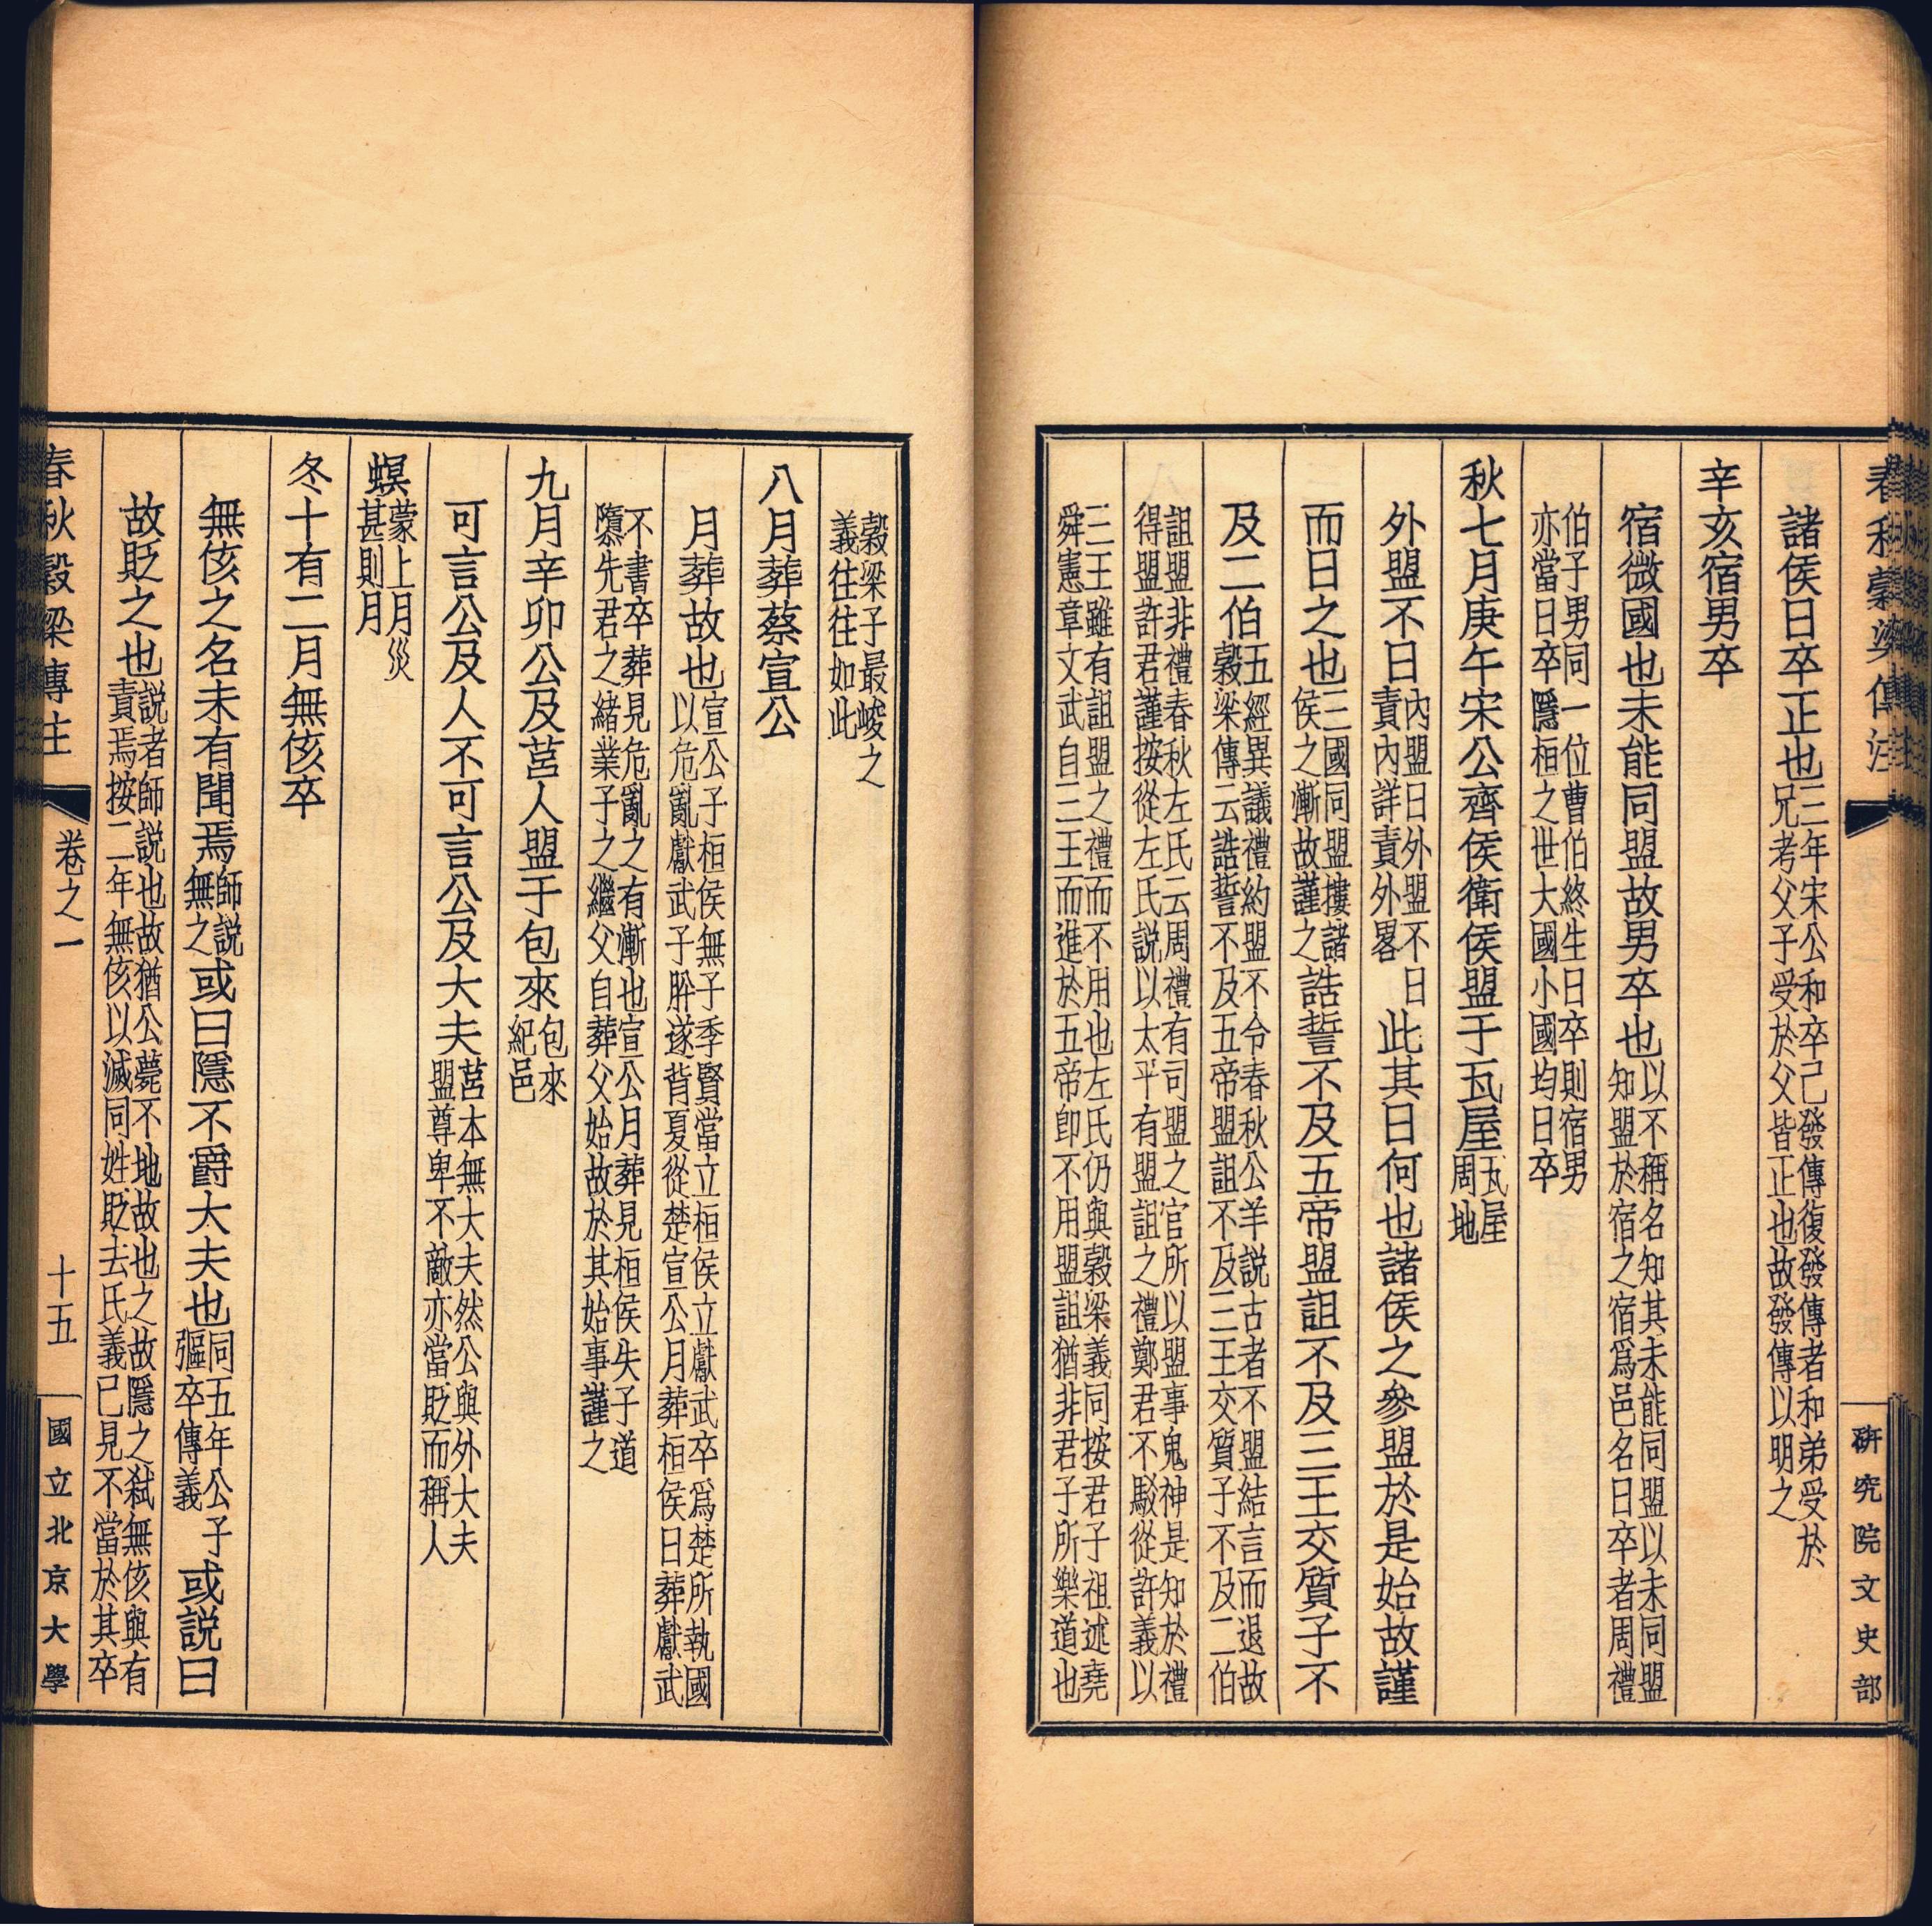 春秋穀梁傳注
研究院文史部
諸侯日卒正也三年宋公和卒已發傳復發傳者和弟受於
兄考父子受於父皆正也故發傳以明之
辛亥宿男卒
宿微國也未能同盟故男卒也以不稱名知其未能同盟以未同盟
知盟於宿之宿爲邑名日卒者周禮
伯子男同一位曹伯終生日卒則宿男
亦當日卒隱桓之世大國小國均日卒
秋七月庚午宋公齊侯衛侯盟于瓦屋瓦屋
周地
外盟不日內盟日外盟不日
責內詳責外畧此其日何也諸侯之參盟於是始故謹
而日之也三國同盟摟諸
侯之漸故謹之誥誓不及五帝盟詛不及三王交質子不
及二伯五經異議禮約盟不令春秋公羊説古者不盟結言而退故
穀梁傳云誥誓不及五帝盟詛不及三王交質子不及二伯
詛盟非禮春秋左氏云周禮有司盟之官所以盟事鬼神是知於禮
得盟許君謹按從左氏説以太平有盟詛之禮鄭君不駁從許義以
三王雖有詛盟之禮而不用也左氏仍與穀梁義同按君子祖述堯
舜憲章文武自三王而進於五帝卽不用盟詛猶非君子所樂道也
穀梁子最峻之
義往往如此
八月葬蔡宣公
月葬故也宣公子桓侯無子季賢當立桓侯立獻武卒爲楚所執國
以危亂獻武子肸遂背夏從楚宣公月葬桓侯日葬獻武
不書卒葬見危亂之有漸也宣公月葬見桓侯失子道
隳先君之緒業子之繼父自葬父始故於其始事謹之
九月辛卯公及莒人盟于包來包來
紀邑
可言公及人不可言公及大夫莒本無大夫然公與外大夫
盟尊卑不敵亦當貶而稱人
螟蒙上月災
甚則月
冬十有二月無侅卒
無侅之名未有聞焉師説
無之或曰隱不爵大夫也同五年公子
彄卒傳義或説曰
故貶之也説者師説也故猶公薨不地故也之故隱之弑無侅與有
責焉按二年無侅以滅同姓貶去氏義已見不當於其卒
春秋穀梁傳注
卷之一
十五
國立北京大學